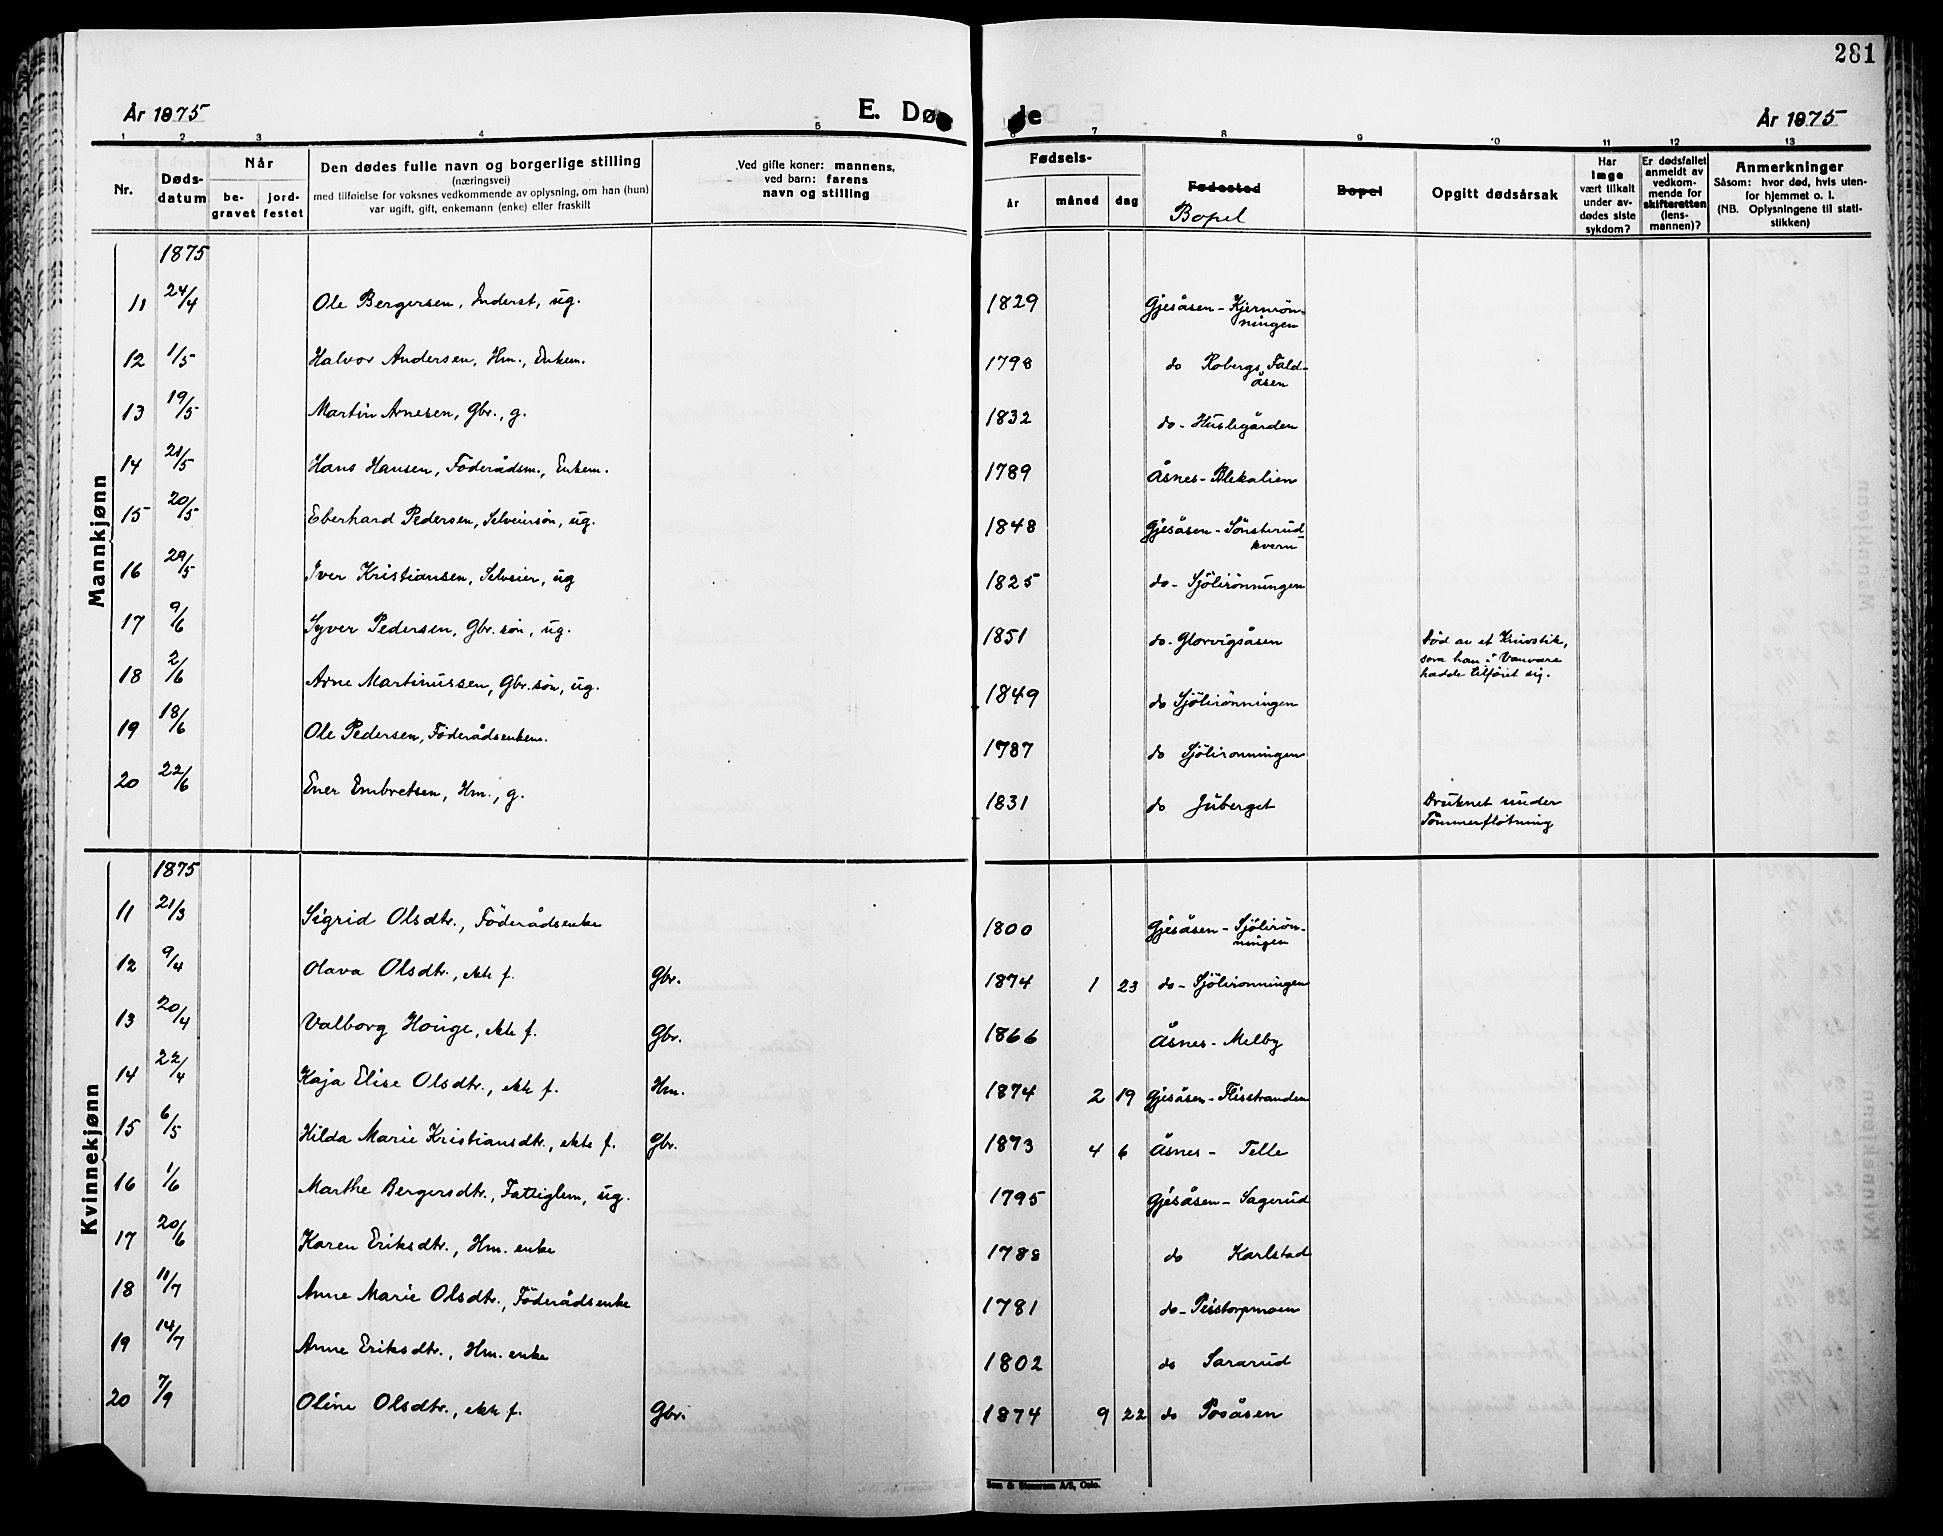 281
År 1875 E. Døde År 1875
1 2 3 4 5 6 7 8 9 10 11 12 13
Nr. Døds-datum Når be-gravet jord-festet
Den dødes fulle navn og borgerlige stilling
(næringsvei)
med tilføielse for voksnes vedkommende av oplysning, om han (hun)
var ugift, gift, enkemann (enke) eller fraskilt
Ved gifte koner: mannens,
ved barn: farens
navn og stilling
Fødsels-
år måned dag
Fødested
Bopel
Bopel
Opgitt dødsårsak
Har
læge
vært tilkalt
under av-
dødes siste
sykdom?
Er dødsfallet
anmeldt av
vedkom-
mende for
skifteretten
(lens-
mannen)?
Anmerkninger
Såsom: hvor død, hvis uten-
for hjemmet o. l.
(NB. Oplysningene til stati-
stikken)
Mannkjønn
1875
11 24/4 Ole Bergersen, Inderst, ug. 1829 Gjesåsen - Kjernrön-
ningen
12 1/5 Halvor Andersen, Hm., Enkem. 1798 do Robergs Fald-
åsen
13 19/5 Martin Arnesen, Gbr., g. 1832 do - Husligården
14 21/5 Hans Hansen, Föderådsm., Enkem. 1789 Åsnes - Blekalien
15 20/5 Eberhard Pedersen, Selveiersön, ug. 1848 Gjesåsen - Sönsterud-
kvern
16 29/5 Iver Kristiansen, Selveier, ug 1825 do - Sjölirönningen
17 9/6 Syver Pedersen, Gbr. sön, ug. 1851 do - Glorvigsåsen Död av et Knivstik,
som han i Vanvare
hadde tilföiet sig.
18 2/6 Arne Martinussen, Gbr. sön, ug. 1849 do Sjölirönningen
19 18/6 Ole Pedersen, Föderådsenkem. 1787 do Sjölironningen
20 22/6 Ener Embretsen, Hm., g. 1831 do Juberget Druknet under
Tömmerflötning
Kvinnekjønn
1875
11 21/3 Sigrid Olsdtr., Föderådsenke 1800 Gjesåsen - Sjölirön-
ningen
12 9/4 Olava Olsdtr., ekte f. Gbr. 1874 1 23 do - Sjölironningen
13 20/4 Valborg Houge, ekte f. Gbr. 1866 Åsnes - Melby
14 22/4 Kaja Elise Olsdtr., ekte f. Hm. 1874 2 19 Gjesåsen - Flisstranden
15 6/5 Hilda Marie Kristiansdtr., ekte f. Gbr. 1873 4 6 Åsnes - Telle
16 1/6 Marthe Bergersdtr., Fattiglem, ug. 1795 Gjesåsen - Sagerud
17 20/6 Karen Eriksdtr., Hm. enke 1788 do Karlstad
18 11/7 Anne Marie Olsdtr., Föderådsenke 1781 do - Peistorpmoen
19 14/7 Anne Eriksdtr., Hm. enke 1802 do Sararud
20 7/9 Oline Olsdtr., ekte f. Gbr. 1874 9 22 do Posåsen
Sem & Stenersen A/S, Oslo.